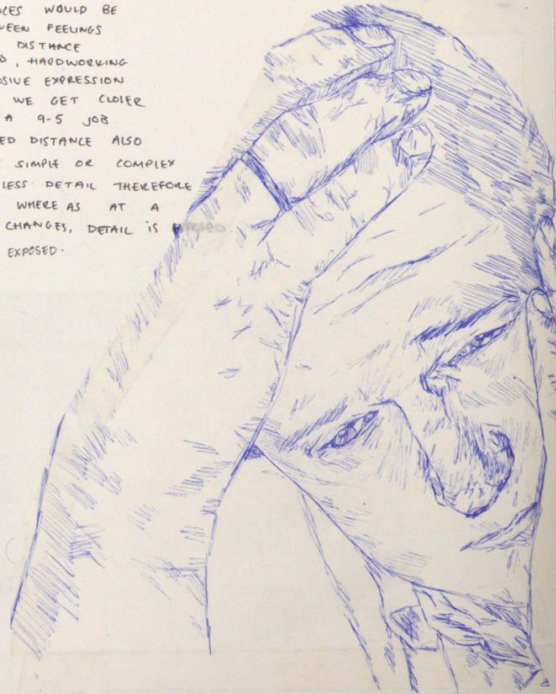 CES WOULD BE
WEEN FEELINGS
DISTANCE
D, HARDWORKING
OSIVE EXPRESSION
WE GET CLOSER
A 9-5 JOB
ED DISTANCE ALSO
SIMPLE OR COMPLEX
LESS DETAIL THEREFORE
WHERE AS AT A
CHANGES, DETAIL IS
EXPOSED.